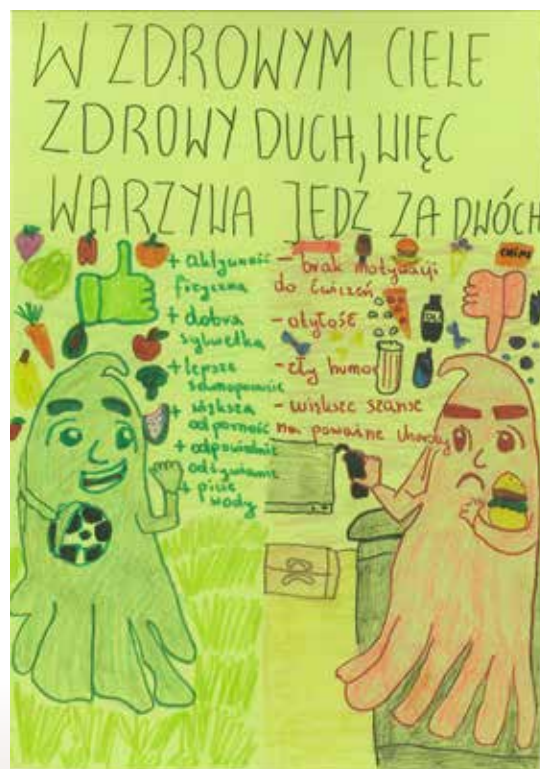 W ZDROWYM CIELE
ZDROWY DUCH, WIĘC
WARZYWA JEDZ ZA DWÓCH
+ aktywność
fizyczna
+ dobra
sylwetka
+ lepsze
samopoczucie
+ większa
odporność
+ odpowiednie
odżywianie
+ picie
wody
- brak motywacji
do ćwiczeń
- otyłość
- zły humor
- większe szanse
na poważne choroby
CHIPS